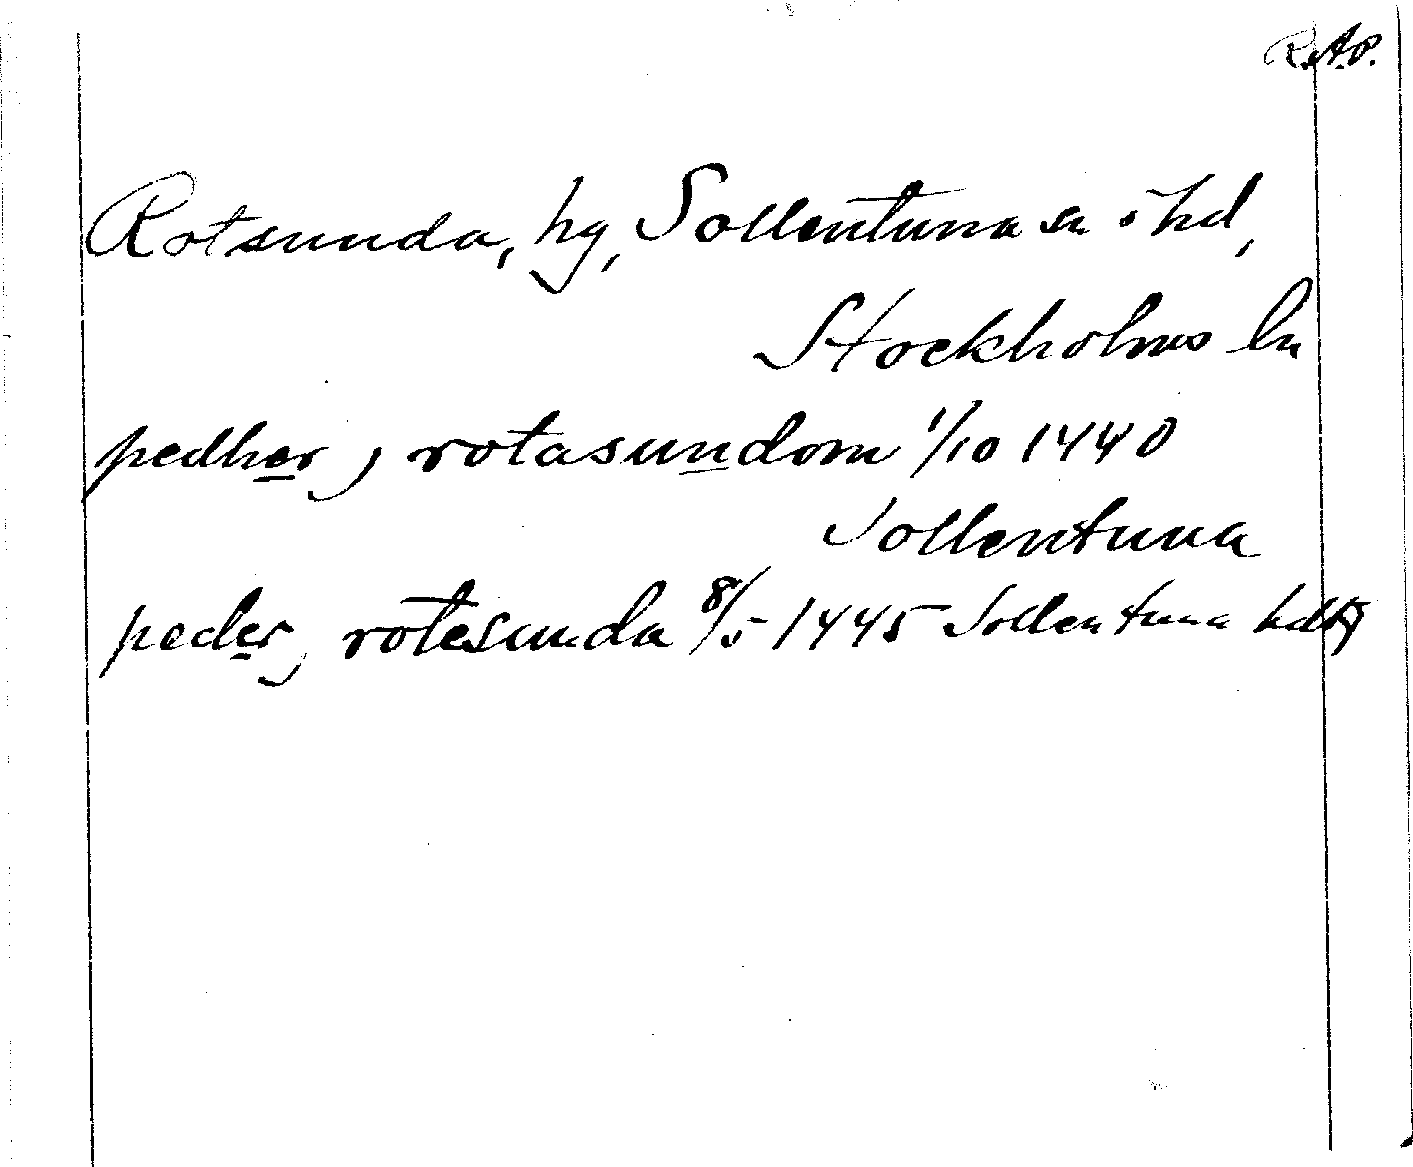 R.A.P.
Rotsunda, hg, Sollentuna sn o hd,
Stockholms ln
pedher j rotasundom 1/10 1440
Sollentuna
peder j rotesunda 8/5 1445 Sollentuna hdtg